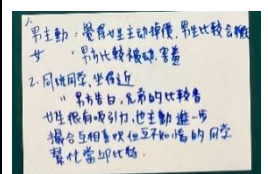 1.
男主動：覺得女生主動掉價，男生比較合機
女　：男方比較被動，害羞
2. 同班同學，坐得近
〃 男告白，兄弟的比較會
女生很有吸引力，也主動進一步
撮合互相喜歡但互不知情的同學
幫忙當